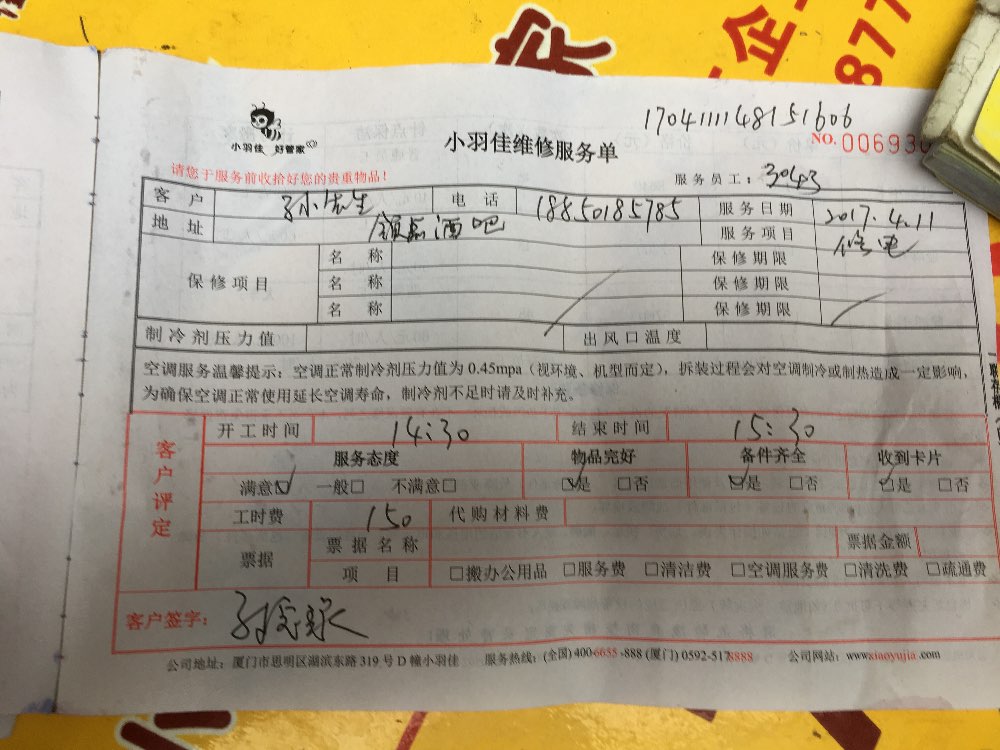 企
877
1704111148151606
小羽佳 好管家
小羽佳维修服务单
NO. 006930
请您于服务前收拾好您的贵重物品!
服务员工:3043
客户 孙先生 电话 18850185785 服务日期 2017.4.11
地址 领点酒吧 服务项目 修电
保修项目 名称 保修期限
名称 保修期限
名称 保修期限
制冷剂压力值 出风口温度
空调服务温馨提示:空调正常制冷剂压力值为 0.45mpa(视环境、机型而定),拆装过程会对空调制冷或制热造成一定影响,
为确保空调正常使用延长空调寿命,制冷剂不足时请及时补充。
客户评定
开工时间 14:30 结束时间 15:30
服务态度 物品完好 备件齐全 收到卡片
满意☑ 一般□ 不满意□ ☑是 □否 ☑是 □否 ☑是 □否
工时费 150 代购材料费
票据 票据名称 票据金额
项目 □搬办公用品 □服务费 □清洁费 □空调服务费 □清洗费 □疏通费
客户签字:
公司地址:厦门市思明区湖滨东路 319 号 D 幢小羽佳 服务热线:(全国) 400-6655-888 (厦门) 0592-5178888 公司网站:www.xiaoyujia.com